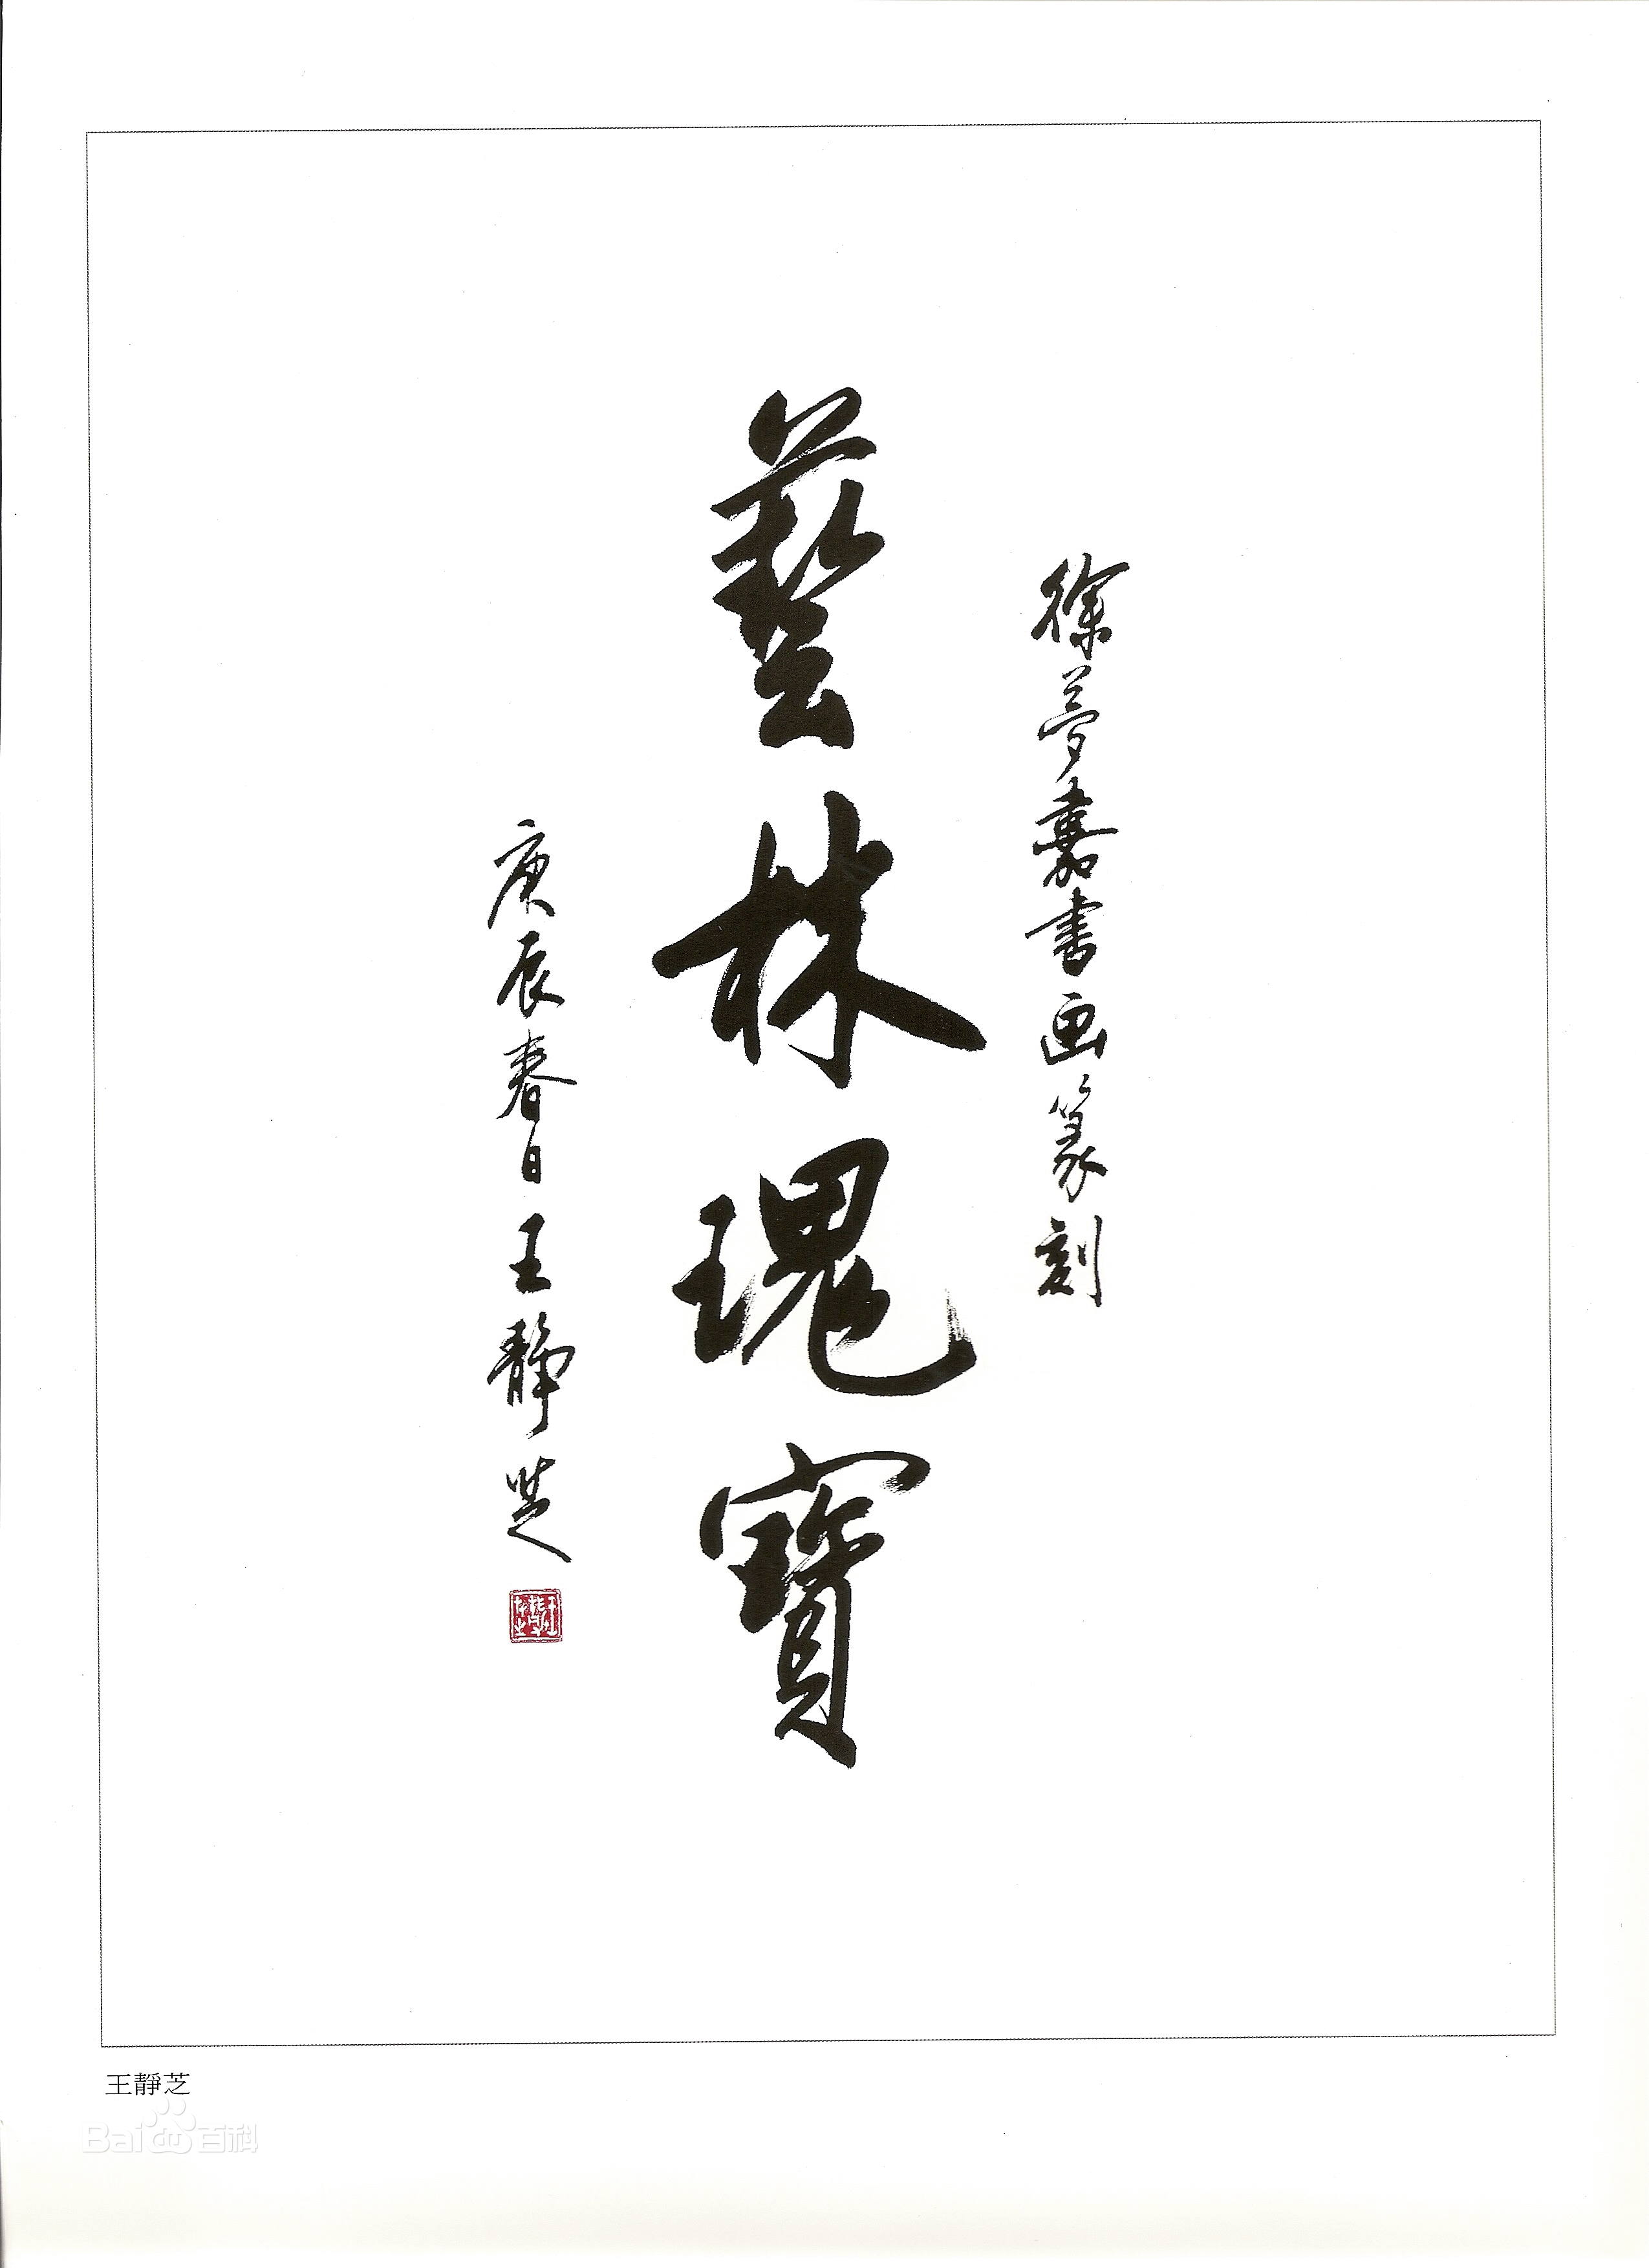 徐夢嘉書画篆刻
藝林瑰寶
庚辰春日王靜芝
王靜芝
Bai百科